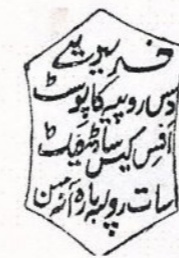 خریدیے
دس روپیے کا پوسٹ
آفس کیس سارٹیفیکٹ
سات روپیہ بارہ آنہ میں